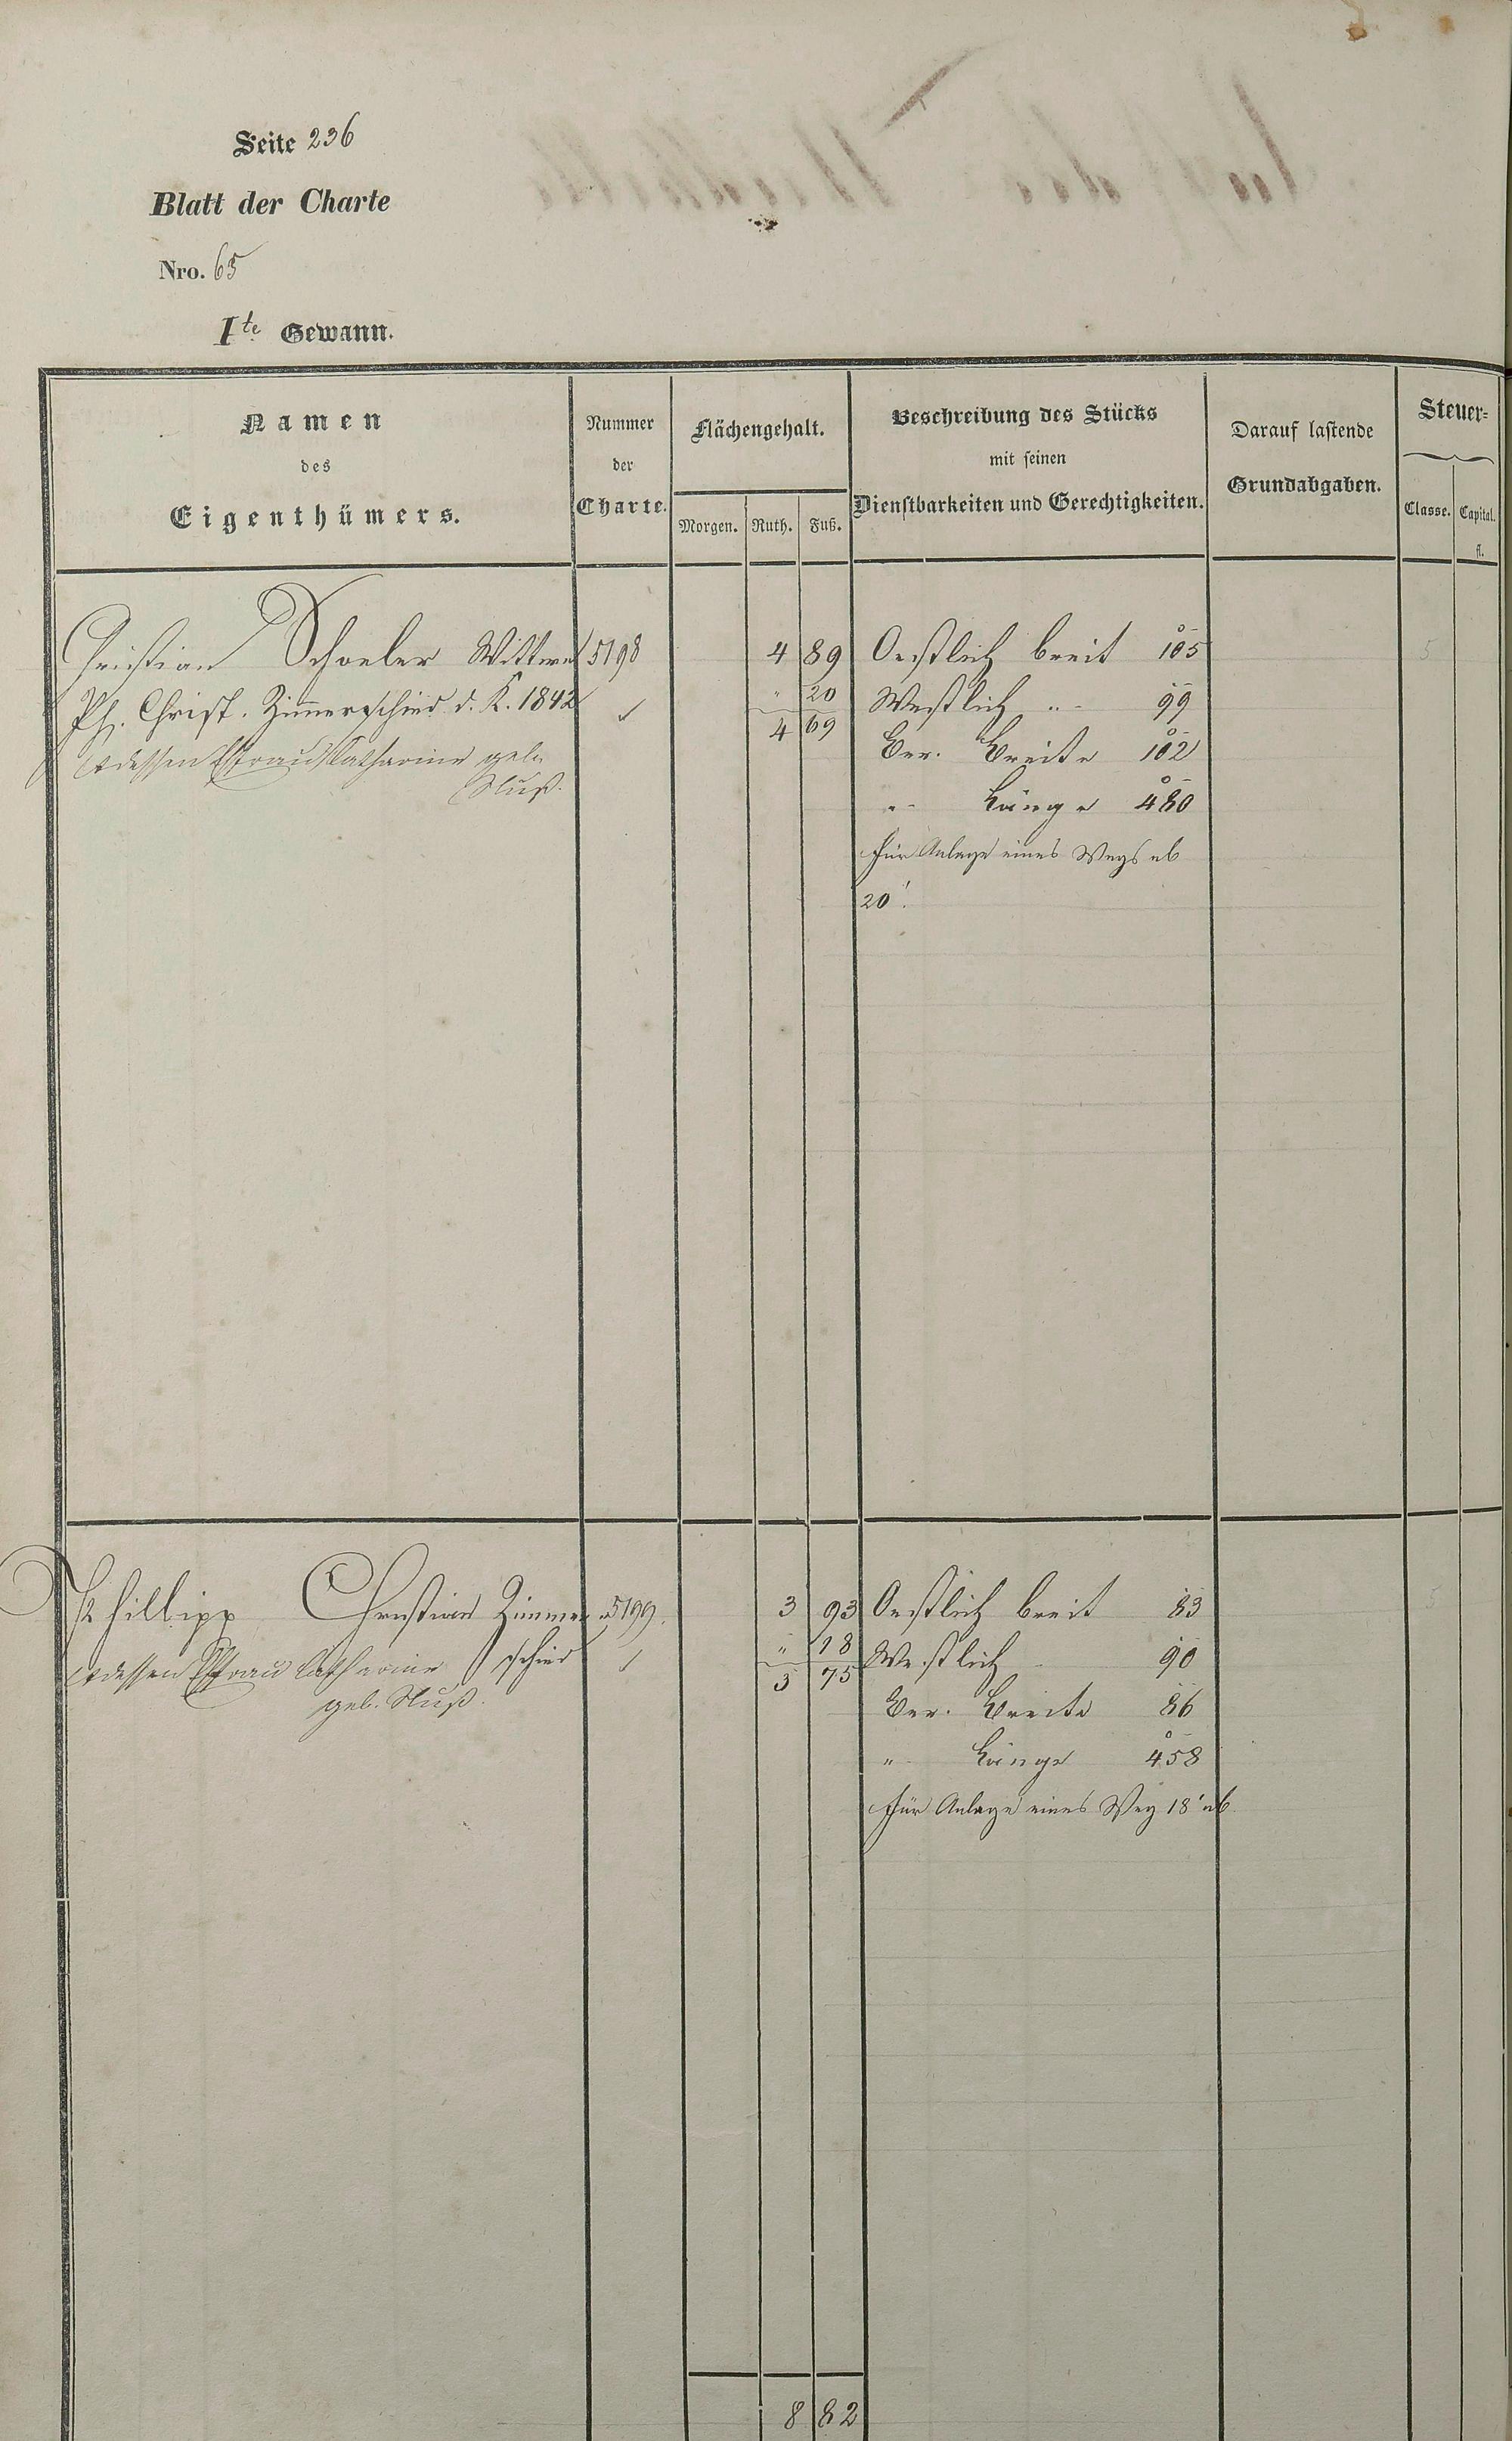 Seite 236
Blatt der Charte
Nro. 65
Ite Gewann.
Namen
des
Eigenthümers.
Nummer
der
Charte.
Flächengehalt.
Morgen. Ruth. Fuß.
Beschreibung des Stücks
mit seinen
Dienstbarkeiten und Gerechtigkeiten.
Darauf lastende
Grundabgaben.
Steuer-
Classe. Capital.
fl.
Christian Schoeler Wittwe 5198 4 89 Oestlich breit 105 5
Ph. Christ. Zimmerschied d. K. 1842 " 20 Westlich " 99
4 69 Ver. Breite 102
u dessen Ehfrau Katharine geb.
" Länge 480
für Anlage eines Wegs ab
20'.
Phillipp Christian Zimmer 5199. 3 93 Oestlich breit 83 5
u dessen Ehfrau Catharine schied " 18 Westlich 90
geb. 3 75
Ver. Breite 86
" Länge 458
für Anlage eines Weg 18' ab
8 82